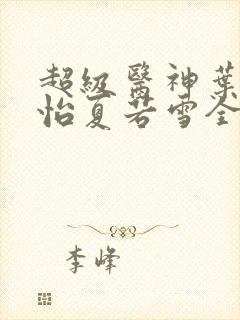 超級醫神葉
怡夏若雪全
李峰